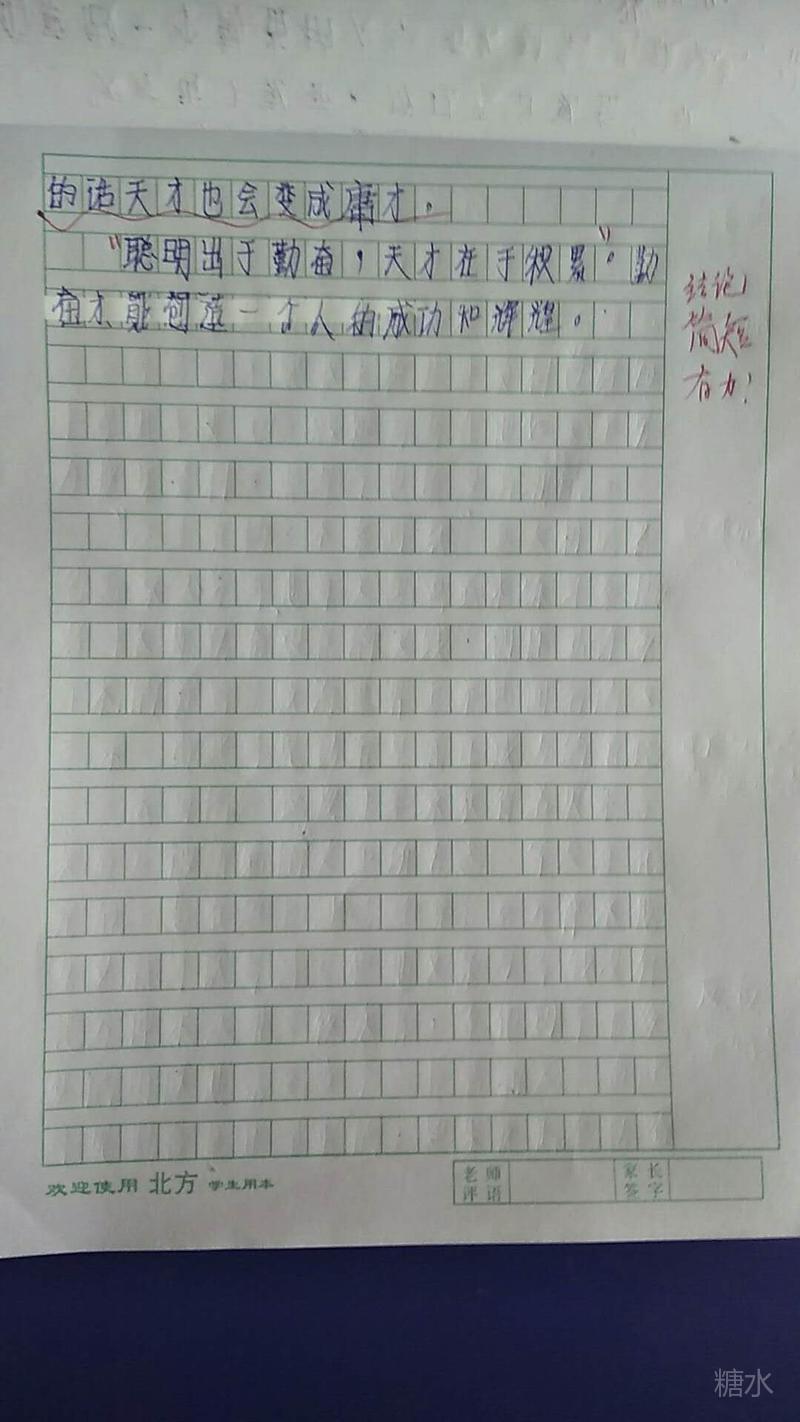 的话天才也会变成庸才。
"聪明出于勤奋，天才在于积累"。勤
奋才能创造一个人的成功和辉煌。
结论
简短
有力！
欢迎使用 北方 学生用本
老师
评语
家长
签字
糖水